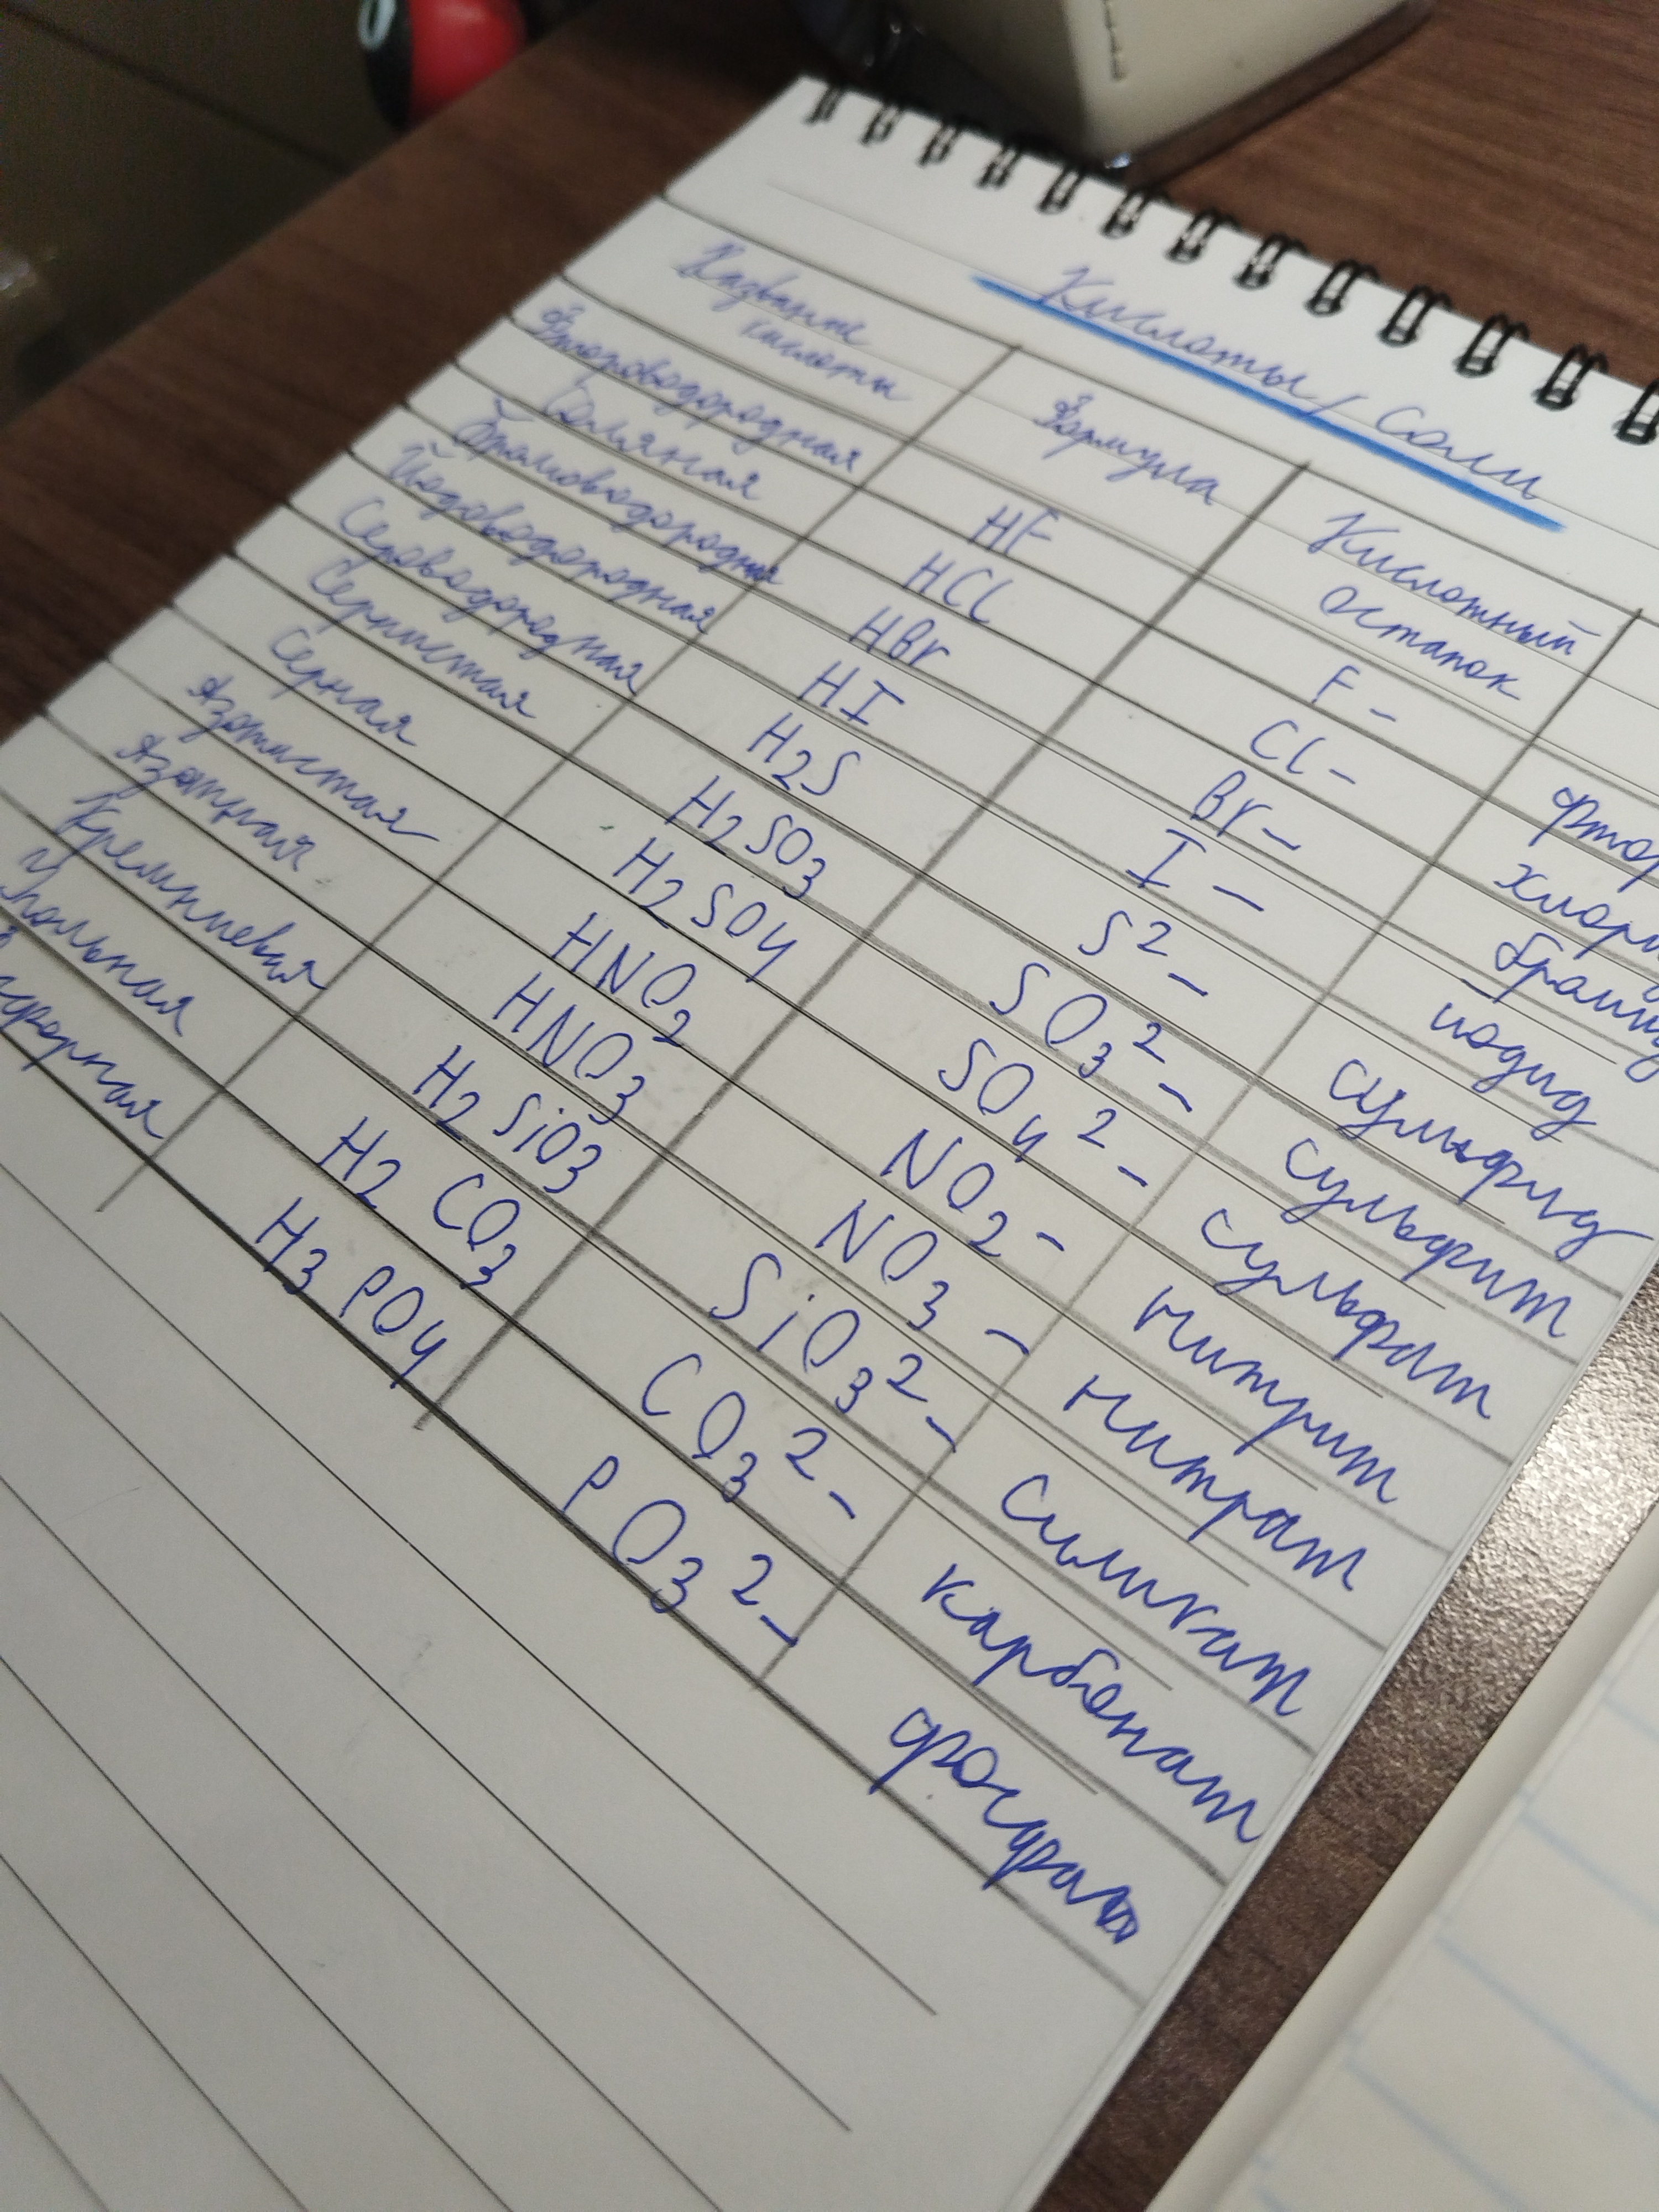 Кислоты / Соли
Название кислоты Формула Кислотный остаток
Фтороводородная HF F -
Соляная HCl Cl -
Бромоводородная HBr Br - бромид
Йодоводородная HI I - йодид
Сероводородная H2S S 2 - сульфид
Сернистая H2SO3 SO3 2 - сульфит
Серная H2SO4 SO4 2 - сульфат
Азотистая HNO2 NO2 - нитрит
Азотная HNO3 NO3 - нитрат
Кремниевая H2SiO3 SiO3 2 - силикат
Угольная H2CO3 CO3 2 - карбонат
H3PO4 PO3 2 - фосфат